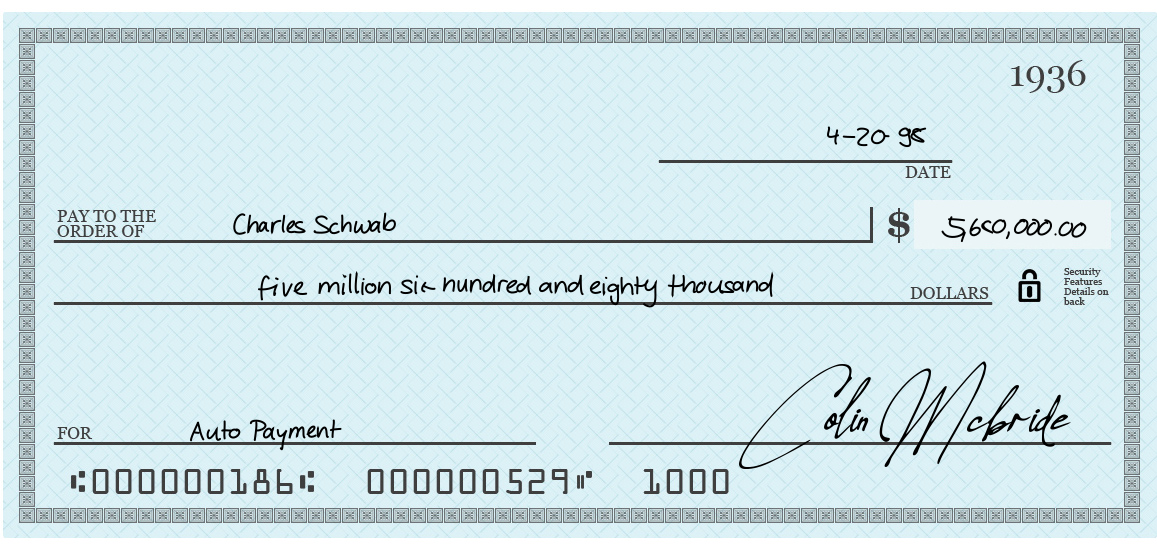 1936
4-20-98
DATE
PAY TO THE
ORDER OF Charles Schwab $
five million six hundred and eighty thousand DOLLARS
Security
Features
Details on
back
FOR Auto Payment Colin Mcbride
000000186 000000529 1000